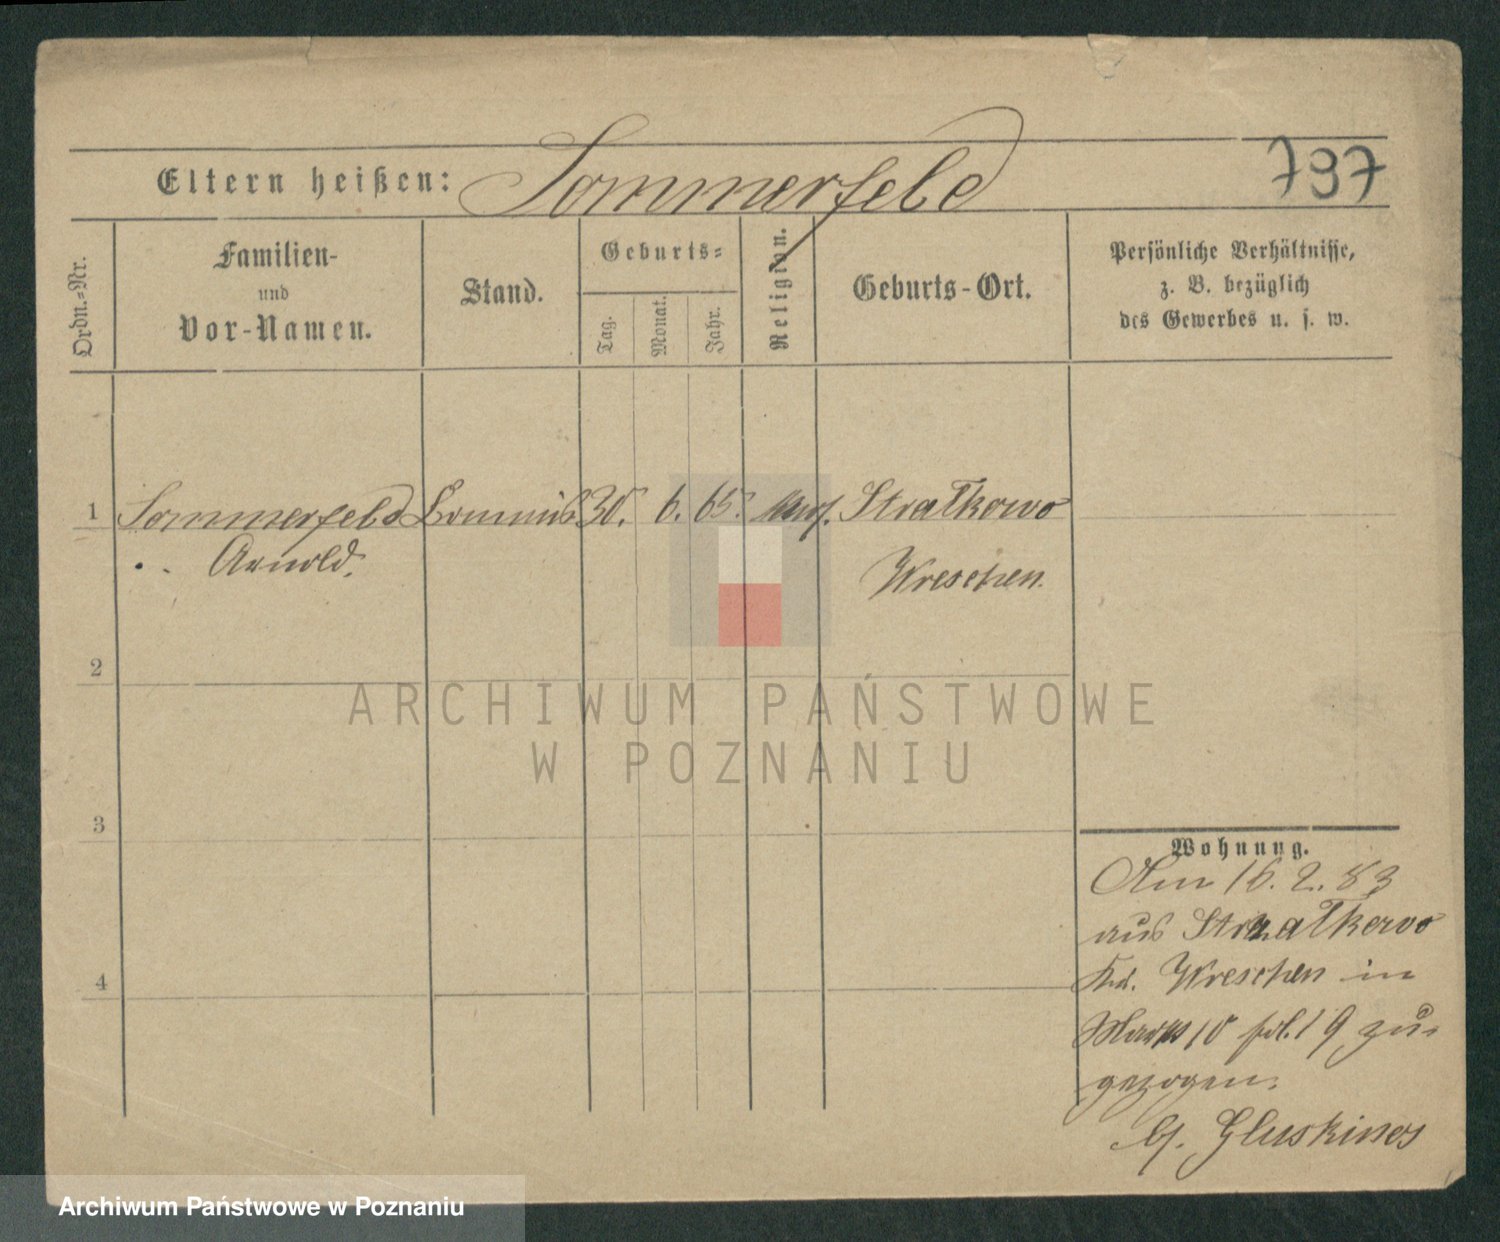 Eltern heißen: Sommerfeld
797
Ordn.-Nr.
Familien-
und
Vor-Namen.
Stand.
Geburts-
Tag.
Monat.
Jahr.
Religion.
Geburts-Ort.
Persönliche Verhältnisse,
z. B. bezüglich
des Gewerbes u. s. w.
1 Sommerfeld Commis 30. 6. 65. Stralkowo
Arnold. Wreschen.
2
ARCHIWUM PAŃSTWOWE
W POZNANIU
3
Wohnung.
Am 16. 2. 83
aus Stralkowo
Wreschen in
Markt 10 fol. 19 zu-
gezogen.
b/. Gluskinos
4
Archiwum Państwowe w Poznaniu